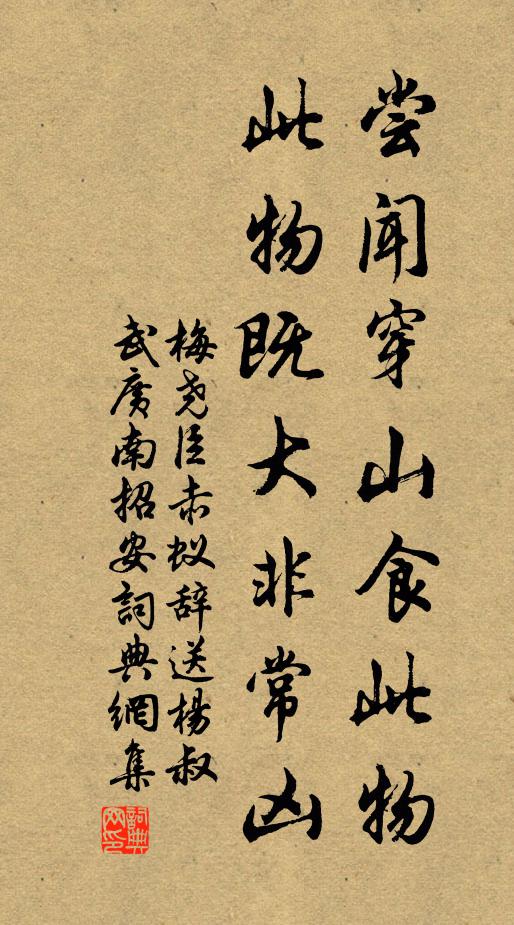 尝闻穿山食此物
此物既大非常凶
梅尧臣赤蚁辞送杨叔
武广南招安詞典網集
詞典网印